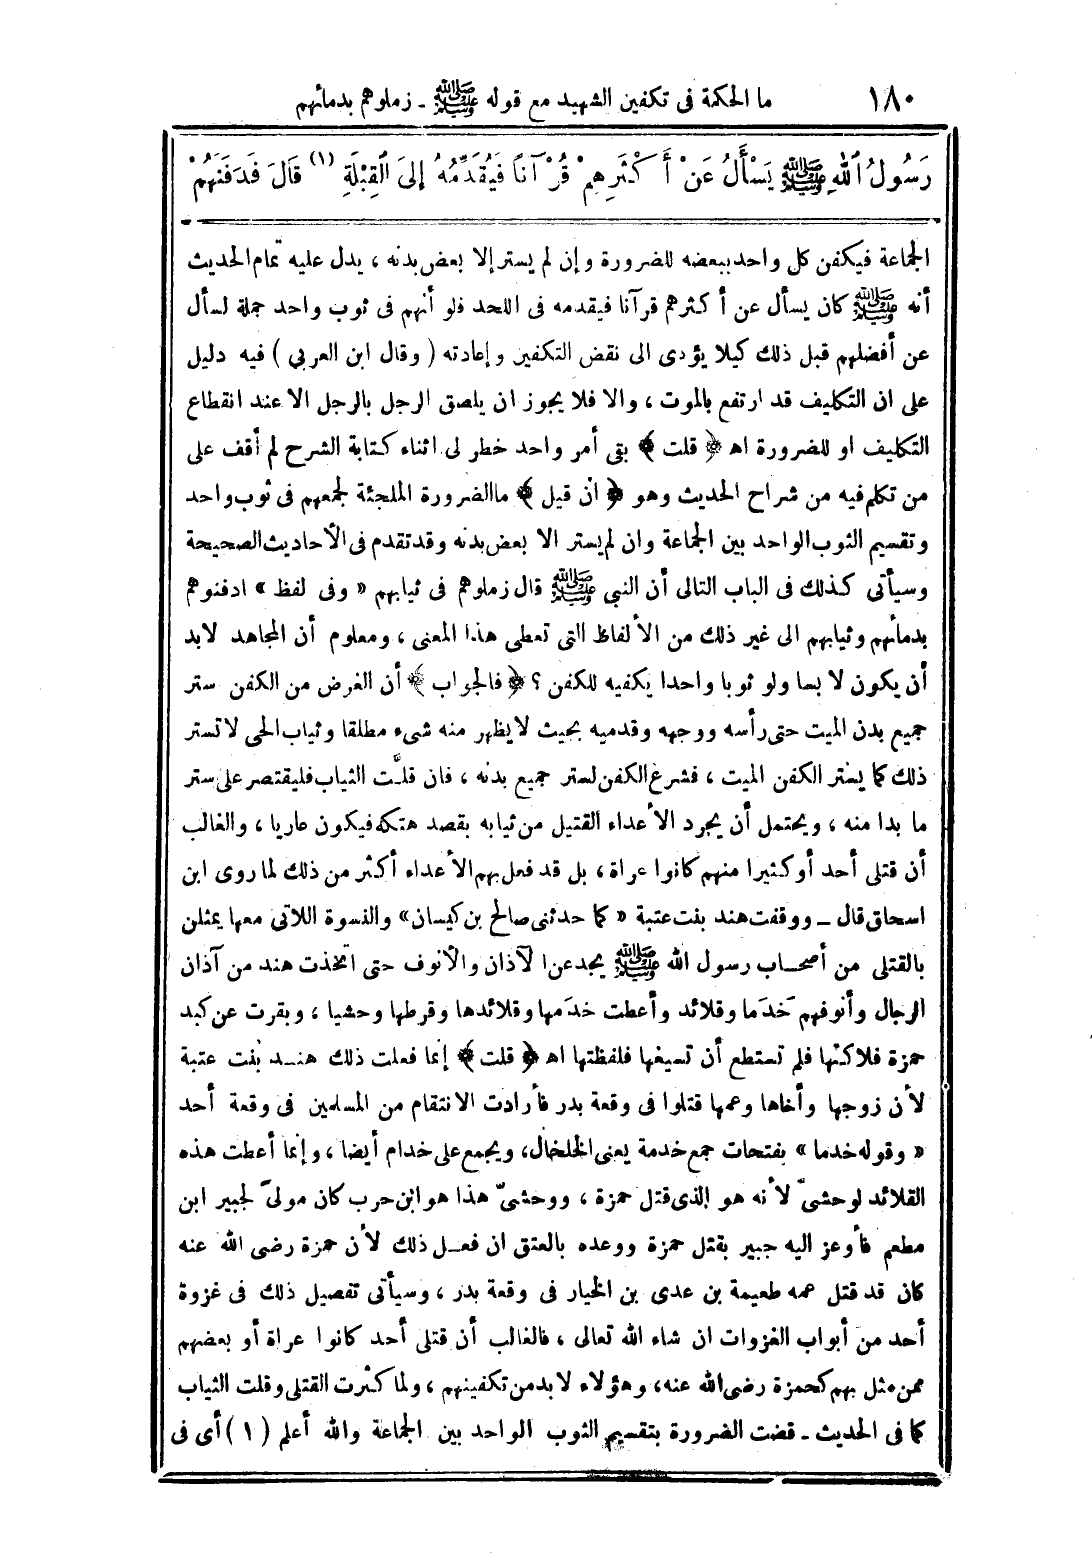 ١٨٠ ما الحكمة فى تكفين الشهيد مع قوله ﷺ ـ زملوهم بدمائهم
رَسُولُ ٱللّٰهِ ﷺ يَسْأَلُ عَنْ أَكْثَرِهِمْ قُرْآنًا فَيُقَدِّمُهُ إِلىَ ٱلقِبْلَةِ (١) قَالَ فَدَفَنَهُمْ
الجماعة فيكفن كل واحد ببعضه للضرورة وإن لم يستر إلا بعض بدنه ، يدل عليه تمام الحديث
أنه ﷺ كان يسأل عن أكثرهم قرآنا فيقدمه فى اللحد فلو أنهم فى ثوب واحد جملة لسأل
عن أفضلهم قبل ذلك كيلا يؤدى الى نقض التكفين وإعادته ( وقال ابن العربي ) فيه دليل
على ان التكليف قد ارتفع بالموت ، والا فلا يجوز ان يلصق الرجل بالرجل الا عند انقطاع
التكليف او للضرورة اهـ ﴿ قلت ﴾ بقى أمر واحد خطر لى اثناء كتابة الشرح لم أقف على
من تكلم فيه من شراح الحديث وهو ﴿ ان قيل ﴾ ما الضرورة الملجئة لجمعهم فى ثوب واحد
وتقسيم الثوب الواحد بين الجماعة وان لم يستر الا بعض بدنه وقد تقدم فى الأحاديث الصحيحة
وسيأتى كذلك فى الباب التالى أن النبي ﷺ قال زملوهم فى ثيابهم « وفى لفظ » ادفنوهم
بدمائهم وثيابهم الى غير ذلك من الألفاظ التى تعطى هذا المعنى ، ومعلوم أن المجاهد لابد
أن يكون لابسا ولو ثوبا واحدا يكفيه للكفن ؟ ﴿ فالجواب ﴾ أن الغرض من الكفن ستر
جميع بدن الميت حتى رأسه ووجهه وقدميه بحيث لا يظهر منه شىء مطلقا وثياب الحى لا تستر
ذلك كما يستر الكفن الميت ، فشرع الكفن لستر جميع بدنه ، فان قلَّت الثياب فليقتصر على ستر
ما بدا منه ، ويحتمل أن يجرد الأعداء القتيل من ثيابه بقصد هتكه فيكون عاريا ، والغالب
أن قتلى أحد أو كثيرا منهم كانوا عراة ، بل قد فعل بهم الأعداء أكثر من ذلك لما روى ابن
اسحاق قال ـ ووقفت هند بنت عتبة « كما حدثنى صالح بن كيسان» والنسوة اللاتى معها يمثلن
بالقتلى من أصحاب رسول الله ﷺ يجدعن الآذان والأنوف حتى اتخذت هند من آذان
الرجال وأنوفهم خَدَما وقلائد وأعطت خدَمها وقلائدها وقرطها وحشيا ، وبقرت عن كبد
حمزة فلاكتها فلم تستطع أن تسيغها فلفظتها اهـ ﴿ قلت ﴾ إنما فعلت ذلك هند بنت عتبة
لأن زوجها وأخاها وعمها قتلوا فى وقعة بدر فأرادت الانتقام من المسلمين فى وقعة أحد
« وقوله خدما » بفتحات جمع خدمة يعنى الخلخال، ويجمع على خدام أيضا ، وإنما أعطت هذه
القلائد لوحشىّ لأنه هو الذى قتل حمزة ، ووحشىّ هذا هو ابن حرب كان مولىً لجبير ابن
مطعم فأوعز اليه جبير بقتل حمزة ووعده بالعتق ان فعل ذلك لأن حمزة رضى الله عنه
كان قد قتل عمه طعيمة بن عدى بن الخيار فى وقعة بدر ، وسيأتى تفصيل ذلك فى غزوة
أحد من أبواب الغزوات ان شاء الله تعالى ، فالغالب أن قتلى أحد كانوا عراة أو بعضهم
ممن مثل بهم كحمزة رضى الله عنه، وهؤلاء لابد من تكفينهم ، ولما كثرت القتلى وقلت الثياب
كما فى الحديث ـ قضت الضرورة بتقسيم الثوب الواحد بين الجماعة والله أعلم ( ١ ) أى فى